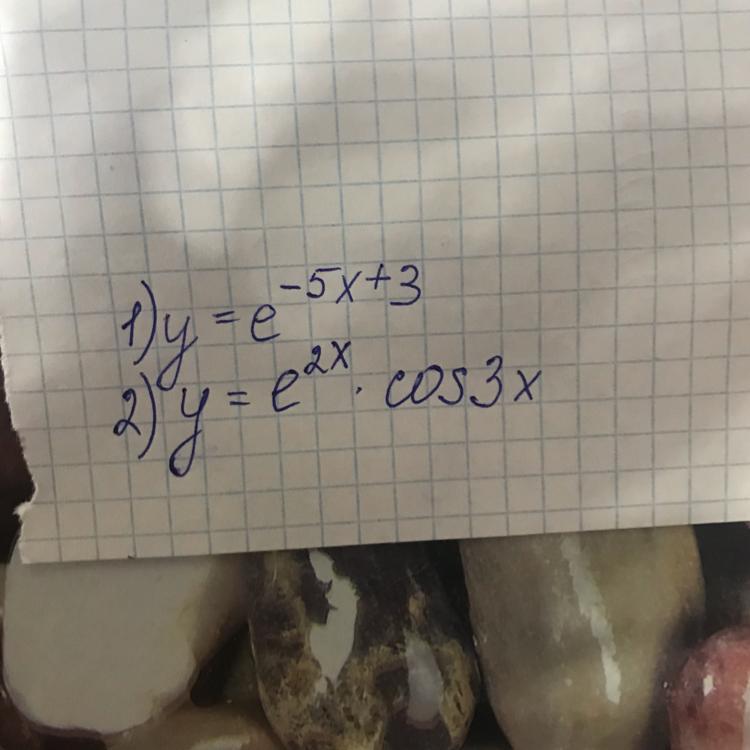 1) y = e^{-5x+3}
2) y = e^{2x} · cos3x